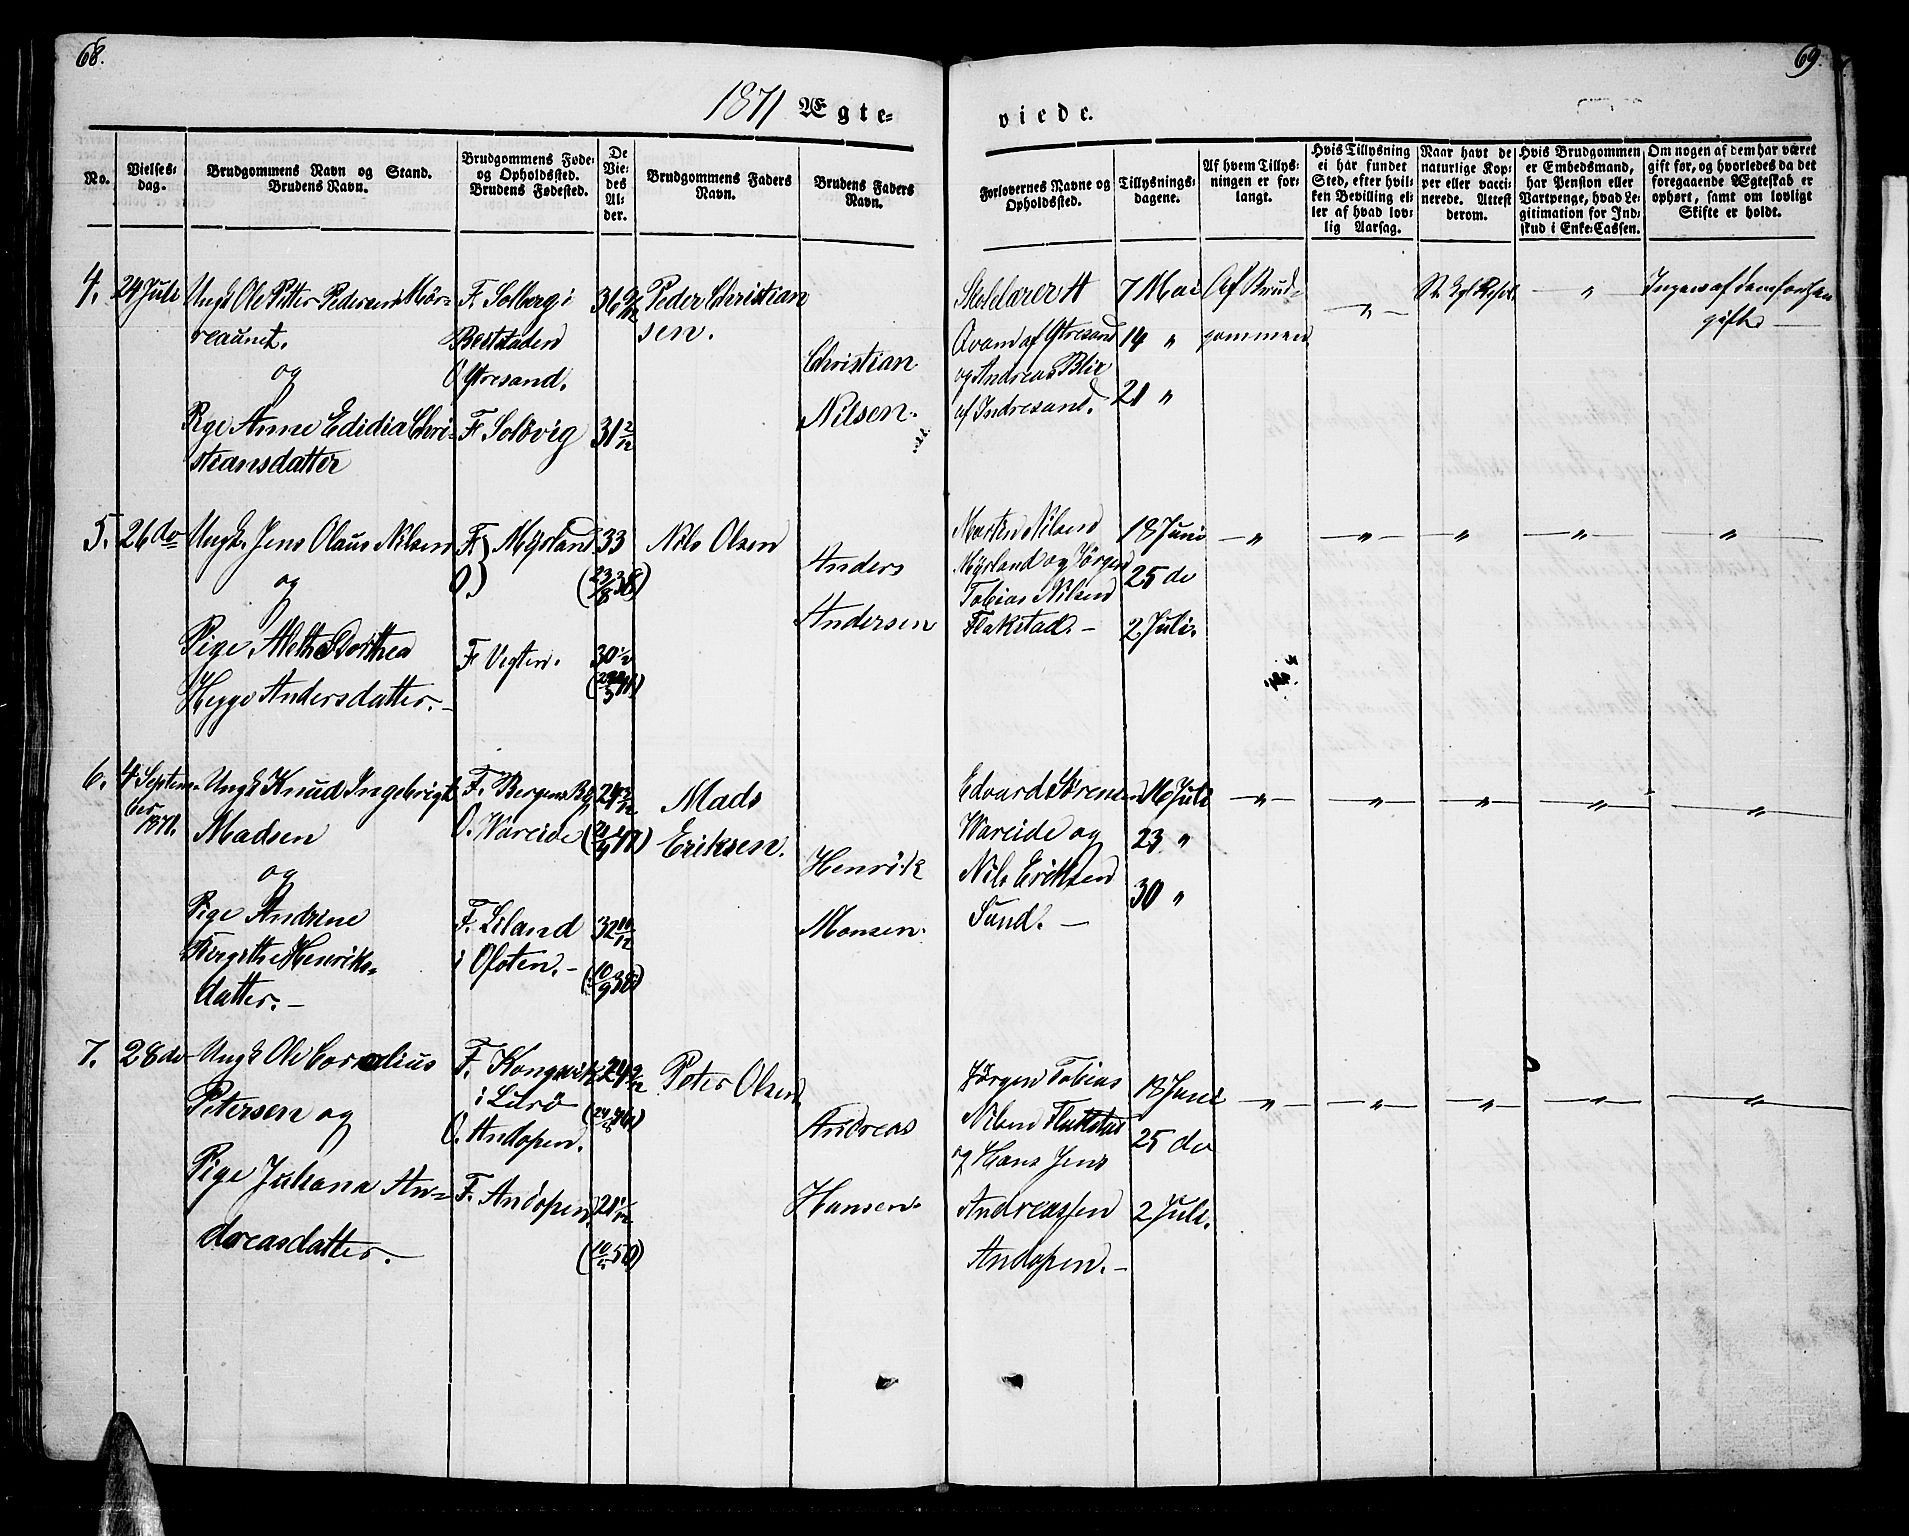 68.
69.
1871 Ægte-
viede.
No.
Vielses-
dag.
Brudgommens Navn og Stand.
Brudens Navn.
Brudgommens Føde-
og Opholdssted.
Brudens Fødested.
De
Vie-
des
Al-
der.
Brudgommens Faders
Navn.
Brudens Faders
Navn.
Forlovernes Navne og
Opholdssted.
Tillysnings-
dagene.
Af hvem Tillys-
ningen er for-
langt.
Hvis Tillysning
ei har fundet
Sted, efter hvil-
ken Bevilling el-
ler af hvad lov-
lig Aarsag.
Naar havt de
naturlige Kop-
per eller vacci-
nerede. Attest
derom.
Hvis Brudgommen
er Embedsmand,
har Pension eller
Vartpenge, hvad Le-
gitimation for Ind-
skud i Enke-Cassen.
Om nogen af dem har været
gift før, og hvorledes da det
foregaaende Ægteskab er
ophørt, samt om lovligt
Skifte er holdt.
4.
24 Juli
Ungk. Ole Petter Pedersen
og
Pige Anne Edidia Chri-
stiansdatter
F. Solberg i
Beitstaden
O. Ytresand.
F. Solbvig
31 2/12
Peder Christian
sen.
Christian
Nilsen.
Skolelærer A
Qvam af Ytresand
og Andreas Blix
af Indresand.
7 Mai
14 "
21 "
Af Brud-
gommen
"
"
Ingen af dem før
gift
5.
26 do
Ungk. Jens Olaus Nilsen
og
Pige Aleth Dorthea
Hegge Andersdatter.
F.
O. } Myrland
F. Vegten.
33
(23/8 38)
30 1/2
Nils Olsen
Anders
Andersen
Morten Nilsen
Myrland og Jørgen
Tobias Nilsen
Flakstad.
18 Juni
25 do
2 Juli.
"
"
"
"
"
6.
4 Septem-
ber
1871.
Ungk Knud Ingebrigt
Madsen
og
Pige Andrine
Birgitthe Henriks-
datter.
F. Bergens By
O. Wareide
F. Liland
i Ofoten.
24
32 10/12
(10/9 38)
Mads
Eriksen.
Henrik
Monsen.
Edvard Sørensen
Wareide og
Nils Eriksen
Sund.
16 Juli
23 "
30 "
"
"
"
"
"
7.
28 do
Ungk Ole Cornelius
Petersen og
Pige Juliana An-
dreasdatter.
F. Kongsvik
i Lilrø
O. Andopen.
F. Andopen
24
21
(10/5 50)
Peter Olsen
Andreas
Hansen.
Jørgen Tobias
Nilsen Flakstad
og Hans Jens
Andreassen
Andopen.
18 Juni
25 do
2 Juli.
"
"
"
"
"